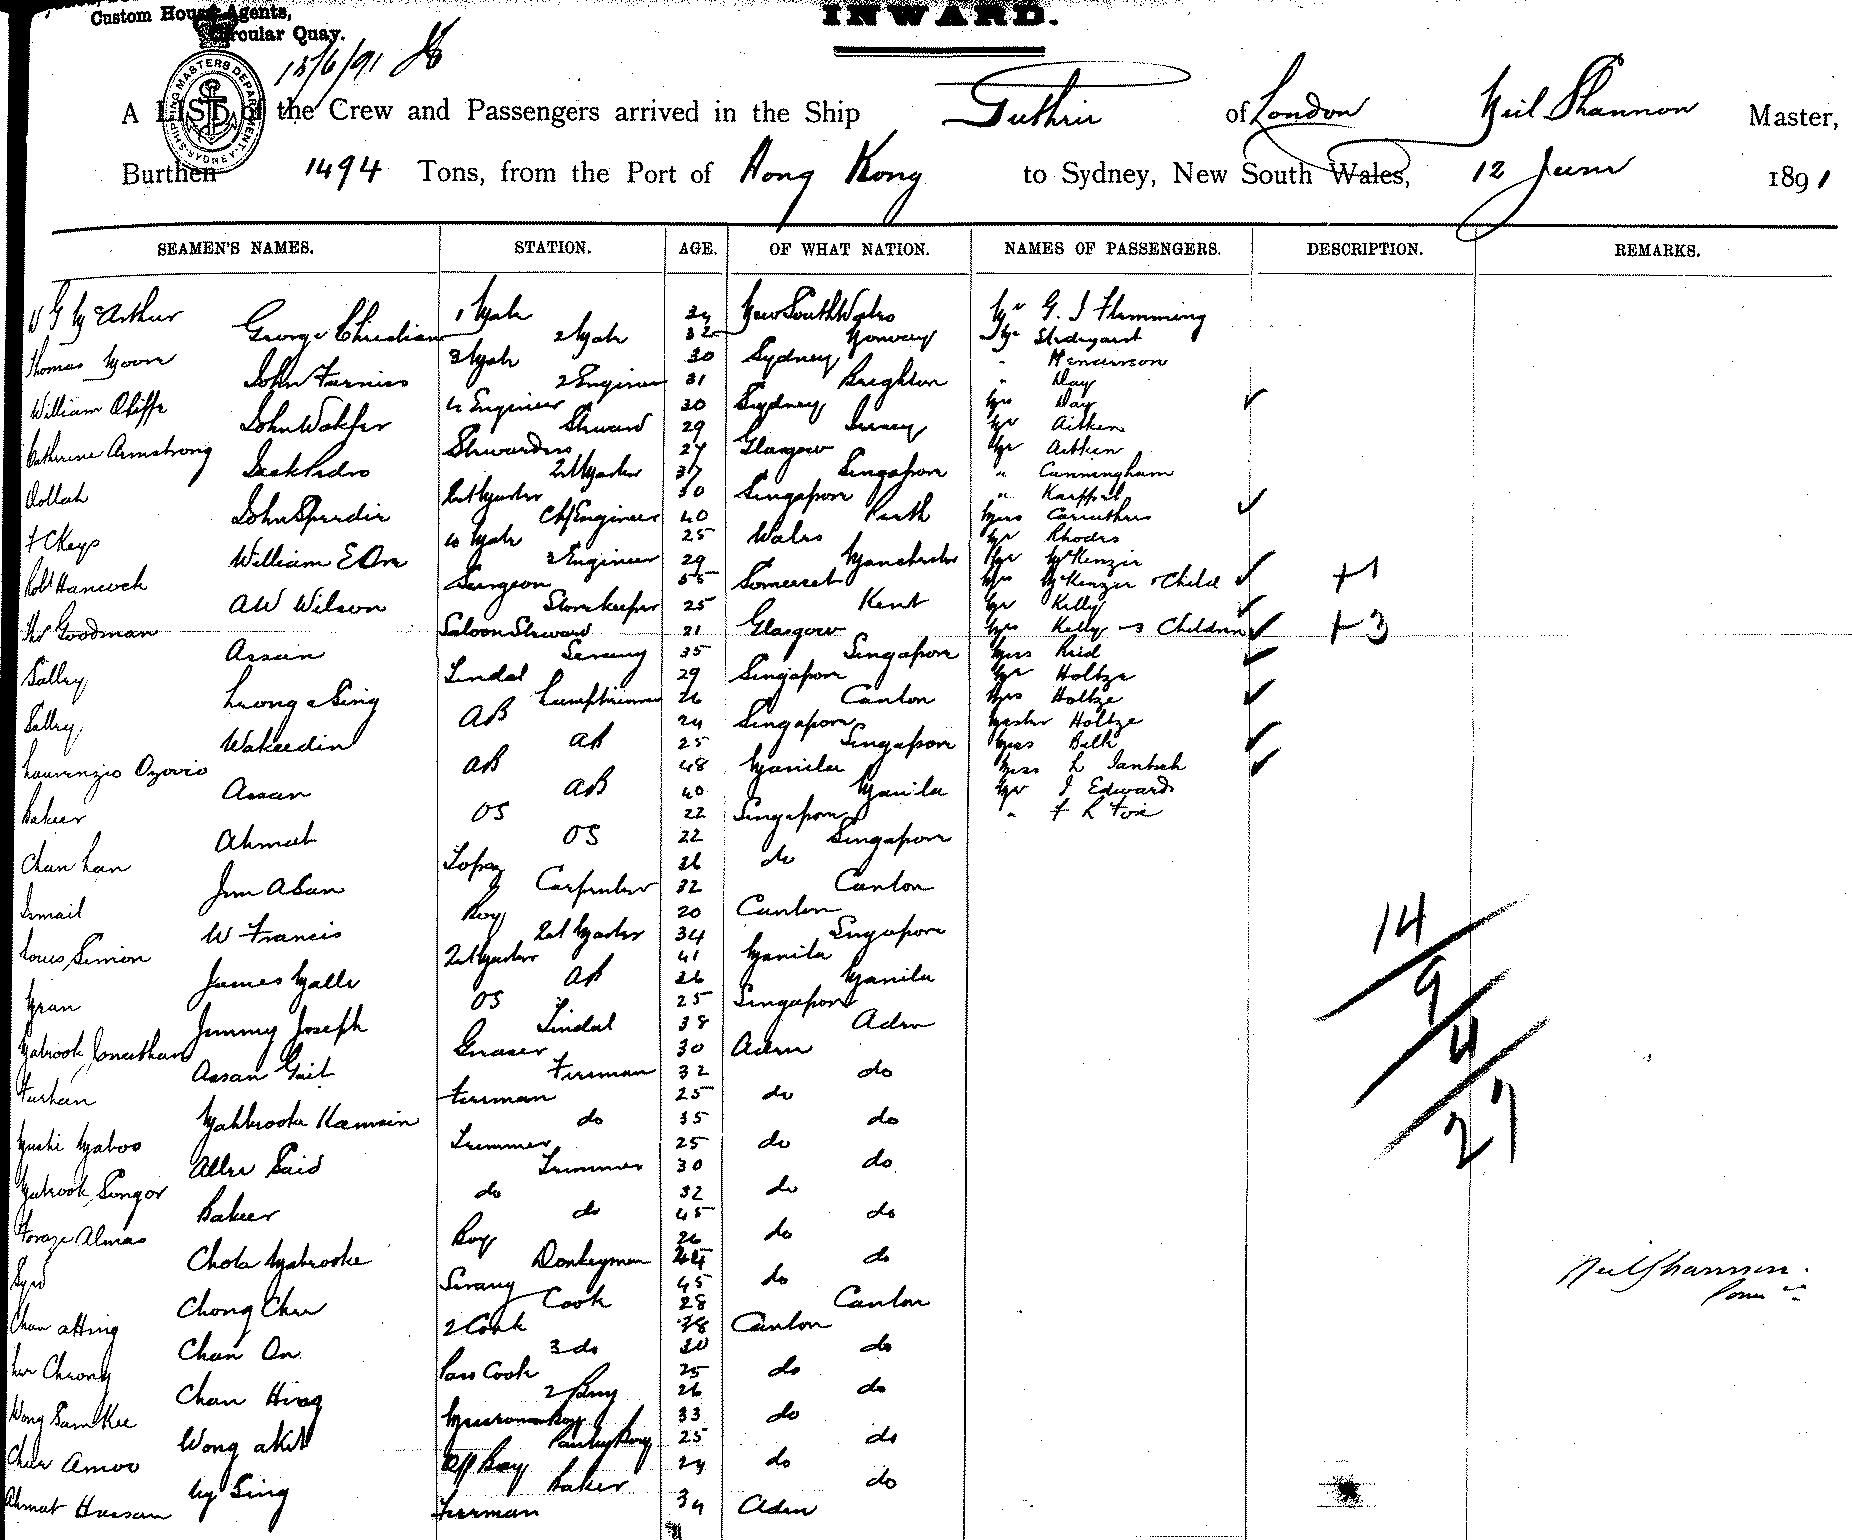 Custom House Agents,
Circular Quay.
INWARD.
15/6/91
SHIPPING MASTERS DEPARTMENT SYDNEY
A LIST of the Crew and Passengers arrived in the Ship Guthrie of London Neil Shannon Master,
Burthen 1494 Tons, from the Port of Hong Kong to Sydney, New South Wales, 12 June 1891
SEAMEN'S NAMES. STATION. AGE. OF WHAT NATION. NAMES OF PASSENGERS. DESCRIPTION. REMARKS.
McArthur 1 Mate New South Wales Mr G. J Flemming
George Christian 2 Mate 32 Norway
Thomas Moore 3 Mate 30 Sydney Henderson
John Furniss 2 Engineer 31 Brighton " Day
William Oliffe 4 Engineer 30 Sydney Mrs Day
John Walker Steward 29 Jersey Mr Aitken
Catherine Armstrong Stewardess 27 Glasgow Mr Aitken
37 Singapore " Cunningham
Dollah 30 Singapore "
John Speedie Chf Engineer 40 Perth Miss Carruthers
F C Keys 4 Mate 25 Wales Mr Rhodes
William E Orr 3 Engineer 29 Manchester Mr McKenzie
Robt Hancock Surgeon 55 Somerset Mrs McKenzie & Child + 1
A W Wilson Storekeeper 25 Kent Mr Kelly
Goodman Saloon Steward 21 Glasgow Mrs Kelly 3 Children + 3
Assan Serang 35 Singapore Miss Reid
Salley Tindal 29 Singapore Mr Holtze
Leong a Sing Lamptrimmer 26 Canton Mrs Holtze
Salley AB 24 Singapore Master Holtze
Wakeedin AB 25 Singapore Miss Belk
Laurenzio Ozorio AB 48 Manila Miss L Jantsch
Assan AB 40 Manila Mr J Edwards
Bakeer OS 22 Singapore " F L Foxe
Ahmat OS 22 Singapore
Chan Lan 26 do
Jim Asan Carpenter 32 Canton
Ismail Boy 20 Canton
W Francis 34 Singapore
Louis Simion 41 Manila
James Malle AB 26 Manila
OS 25 Singapore
Jimmy Joseph Tindal 38 Aden
Mabrook Jonathan Greaser 30 Aden
Assan Gait Fireman 32 do
Farhan Fireman 25 do
Mahbrooke Kamsin do 35 do
Trimmer 25 do
Allee Said Trimmer 30 do
Mabrook Songor do 32 do
Bakeer do 45 do
Foraze Almas Boy 26 do
Chota Mabrooke Donkeyman do
Syed Serang 45 do
Chong Chee Cook 28 Canton
Chan atting 2 Cook 38 Canton
Chan On 3 do 30 do
Cheong Pass Cook 25 do
Chan Hing 26 do
Wong Sam Kee Messroom Boy 33 do
Wong akit Pantry Boy 25 do
Amoo Boy 24 do
Ng Sing Baker do
Ahmat Hassan Fireman 34 Aden
14
9
4
27
Neil Shannon